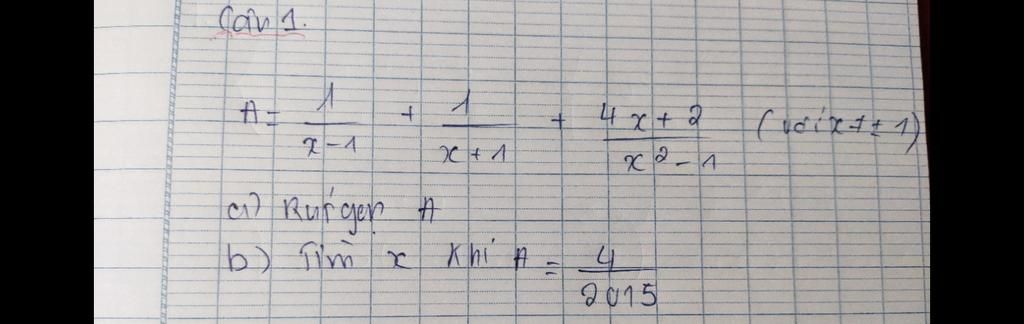 Câu 1.
A = 1/(x-1) + 1/(x+1) + (4x+2)/(x²-1) (với x ≠ ± 1)
a) Rút gọn A
b) Tìm x khi A = 4/2015